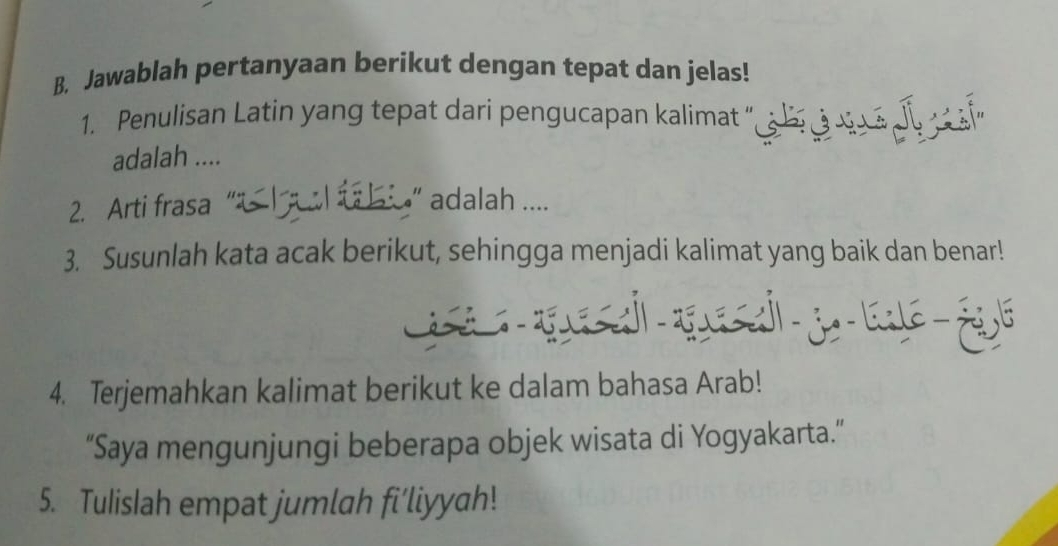 B. Jawablah pertanyaan berikut dengan tepat dan jelas!
1. Penulisan Latin yang tepat dari pengucapan kalimat "أَشْعُرُ بِأَلَمٍ شَدِيْدٍ فِي بَطْنِي"
adalah ....
2. Arti frasa "مِنْطَقَةُ اسْتِرَاحَة" adalah ....
3. Susunlah kata acak berikut, sehingga menjadi kalimat yang baik dan benar!
تَارِيْخَ – عَلِمْنَا - مِنْ - الْمُحَمَّدِيَّة - الْمُحَمَّدِيَّة - مَتْحَفِ
4. Terjemahkan kalimat berikut ke dalam bahasa Arab!
"Saya mengunjungi beberapa objek wisata di Yogyakarta."
5. Tulislah empat jumlah fi'liyyah!